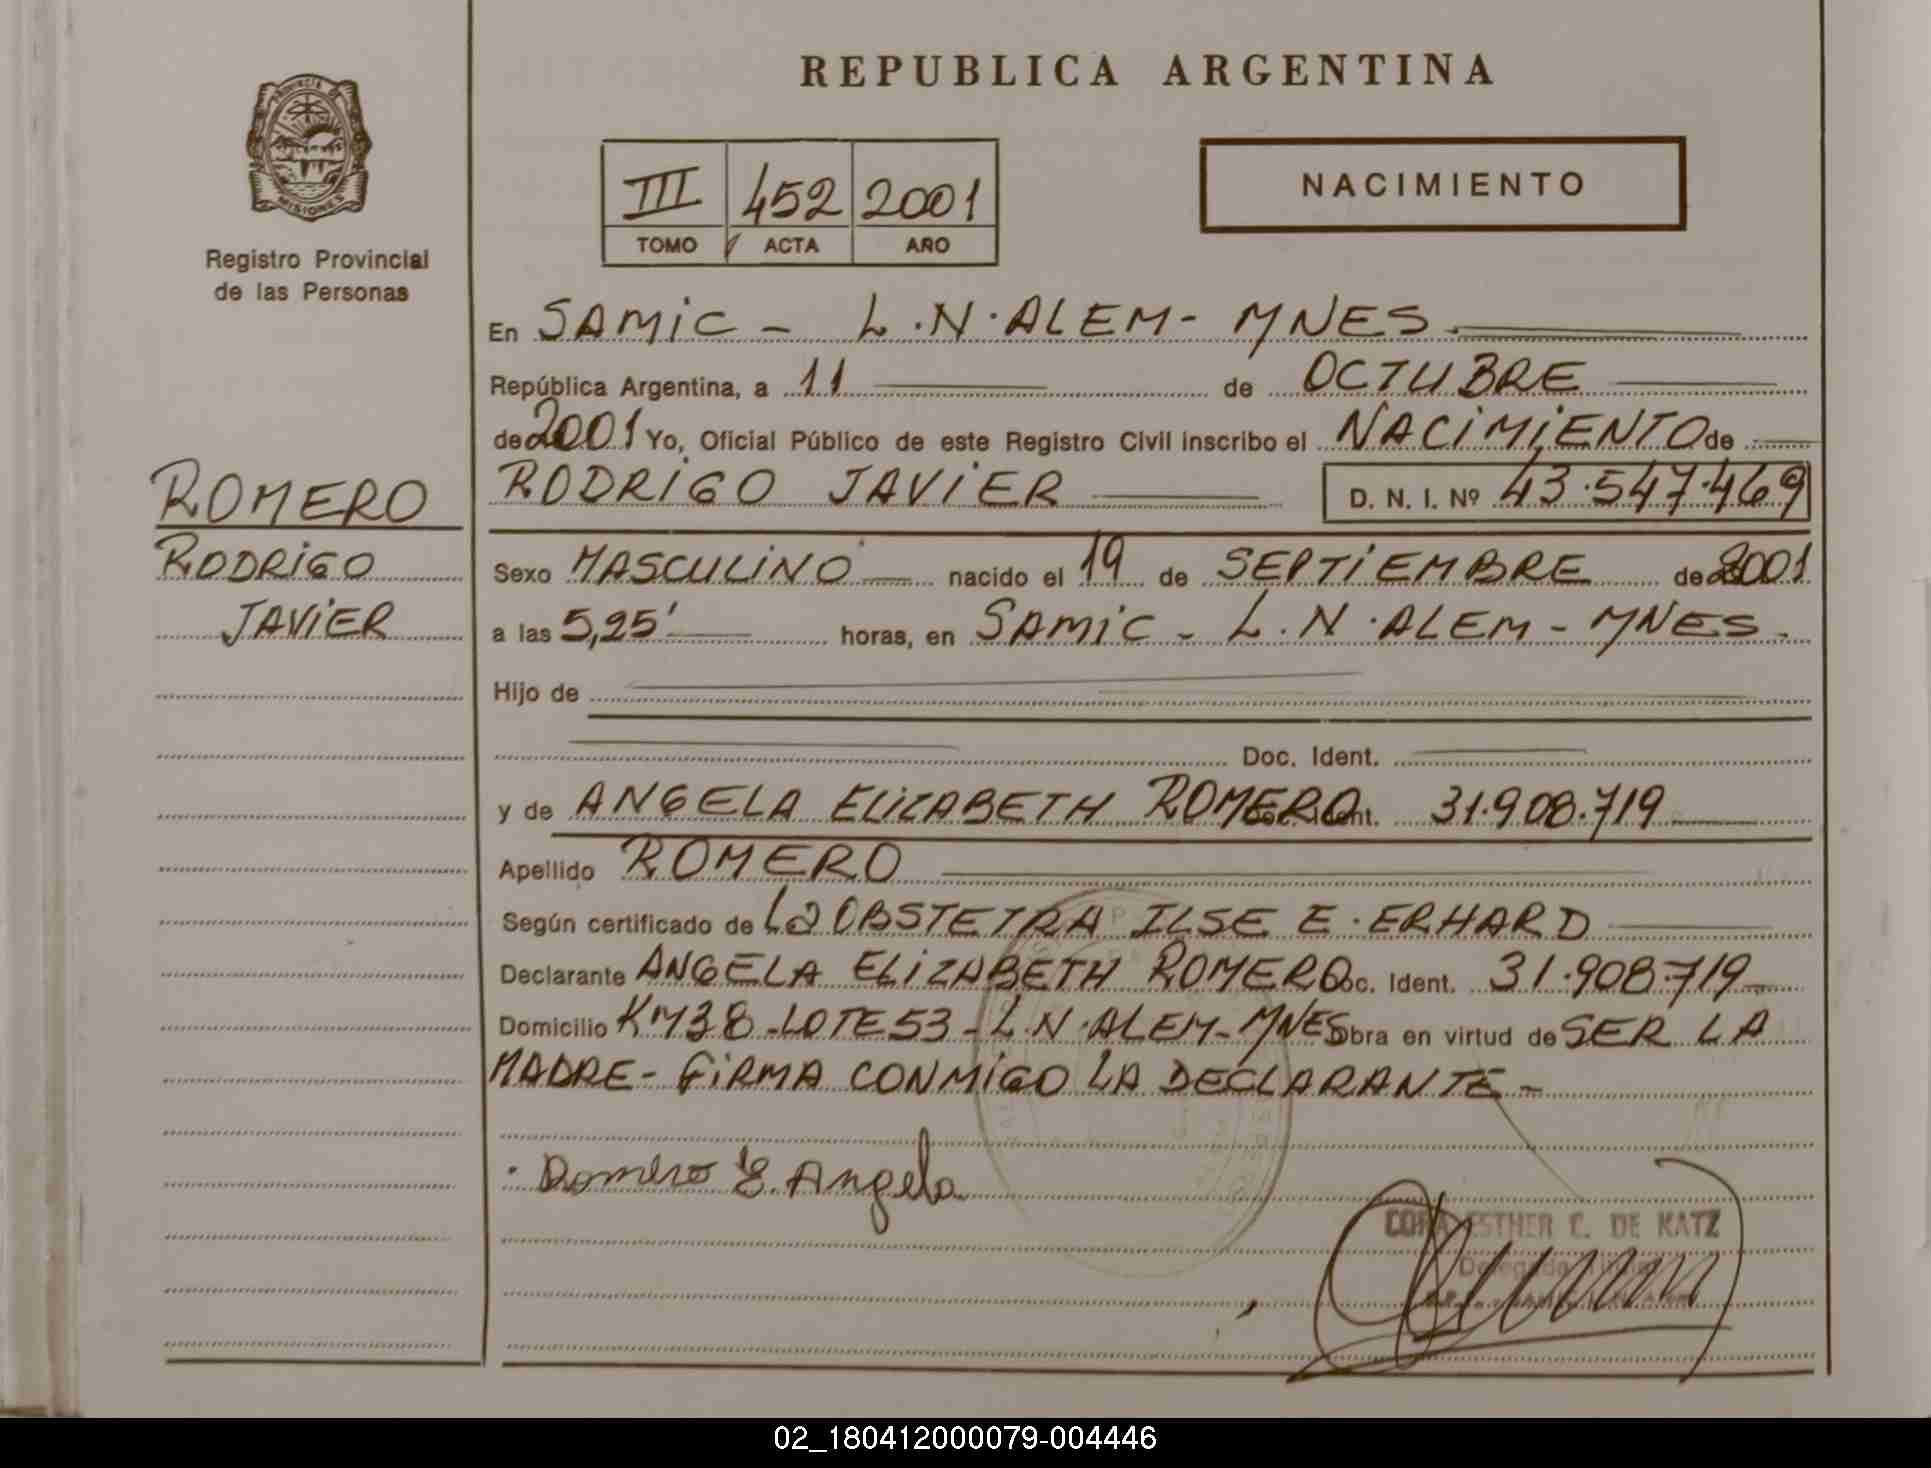 REPUBLICA ARGENTINA
PROVINCIA DE
MISIONES
Registro Provincial
de las Personas
III 452 2001
TOMO ACTA AÑO
NACIMIENTO
En SAMIC - L.N. ALEM - MNES.
República Argentina, a 11 de OCTUBRE
de 2001 Yo, Oficial Público de este Registro Civil inscribo el NACIMIENTO de
ROMERO
RODRIGO
JAVIER
RODRIGO JAVIER D. N. I. Nº 43.547.469
Sexo MASCULINO nacido el 19 de SEPTIEMBRE de 2001
a las 5,25' horas, en SAMIC - L.N. ALEM - MNES.
Hijo de
Doc. Ident.
y de ANGELA ELIZABETH ROMERO Doc. Ident. 31.908.719
Apellido ROMERO
Según certificado de La OBSTETRA ILSE E. ERHARD
Declarante ANGELA ELIZABETH ROMERO Doc. Ident. 31.908.719
Domicilio KM 38 - LOTE 53 - L.N. ALEM - MNES Obra en virtud de SER LA
MADRE - FIRMA CONMIGO LA DECLARANTE -
Romero E. Angela
CORA ESTHER C. DE KATZ
Delegada Titular
02_180412000079-004446